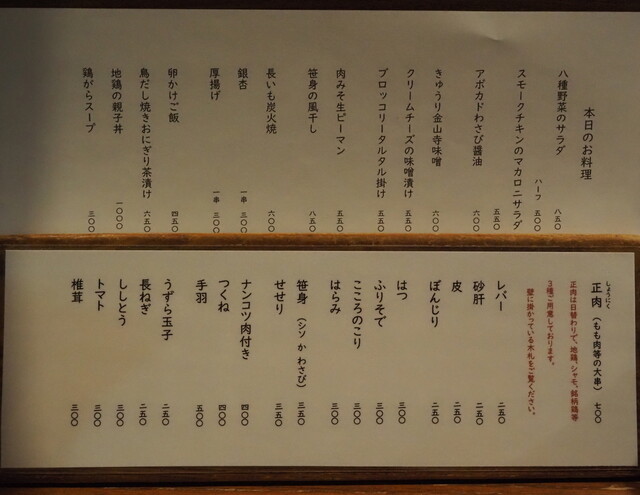 本日のお料理
八種野菜のサラダ 八五〇
ハーフ 五〇〇
スモークチキンのマカロニサラダ 五五〇
アボカドわさび醤油 六〇〇
きゅうり金山寺味噌 六〇〇
クリームチーズの味噌漬け 五五〇
ブロッコリータルタル掛け 五五〇
肉みそ生ピーマン 五五〇
笹身の風干し 八五〇
長いも炭火焼 六〇〇
銀杏 一串 三〇〇
厚揚げ 一串 三〇〇
卵かけご飯 四五〇
鳥だし焼きおにぎり茶漬け 六五〇
地鶏の親子丼 一〇〇〇
鶏がらスープ 三〇〇
しょうにく
正肉（もも肉等の大串） 七〇〇
正肉は日替わりで、地鶏、シャモ、銘柄鶏等
3種ご用意しております。
壁に掛かっている木札をご覧ください。
レバー 二五〇
砂肝 二五〇
皮 二五〇
ぼんじり 二五〇
はつ 三〇〇
ふりそで 三〇〇
こころのこり 三〇〇
はらみ 三〇〇
笹身（シソ か わさび） 三五〇
せせり 三五〇
ナンコツ肉付き 四〇〇
つくね 四〇〇
手羽 五〇〇
うずら玉子 二五〇
長ねぎ 二五〇
ししとう 三〇〇
トマト 三〇〇
椎茸 三〇〇